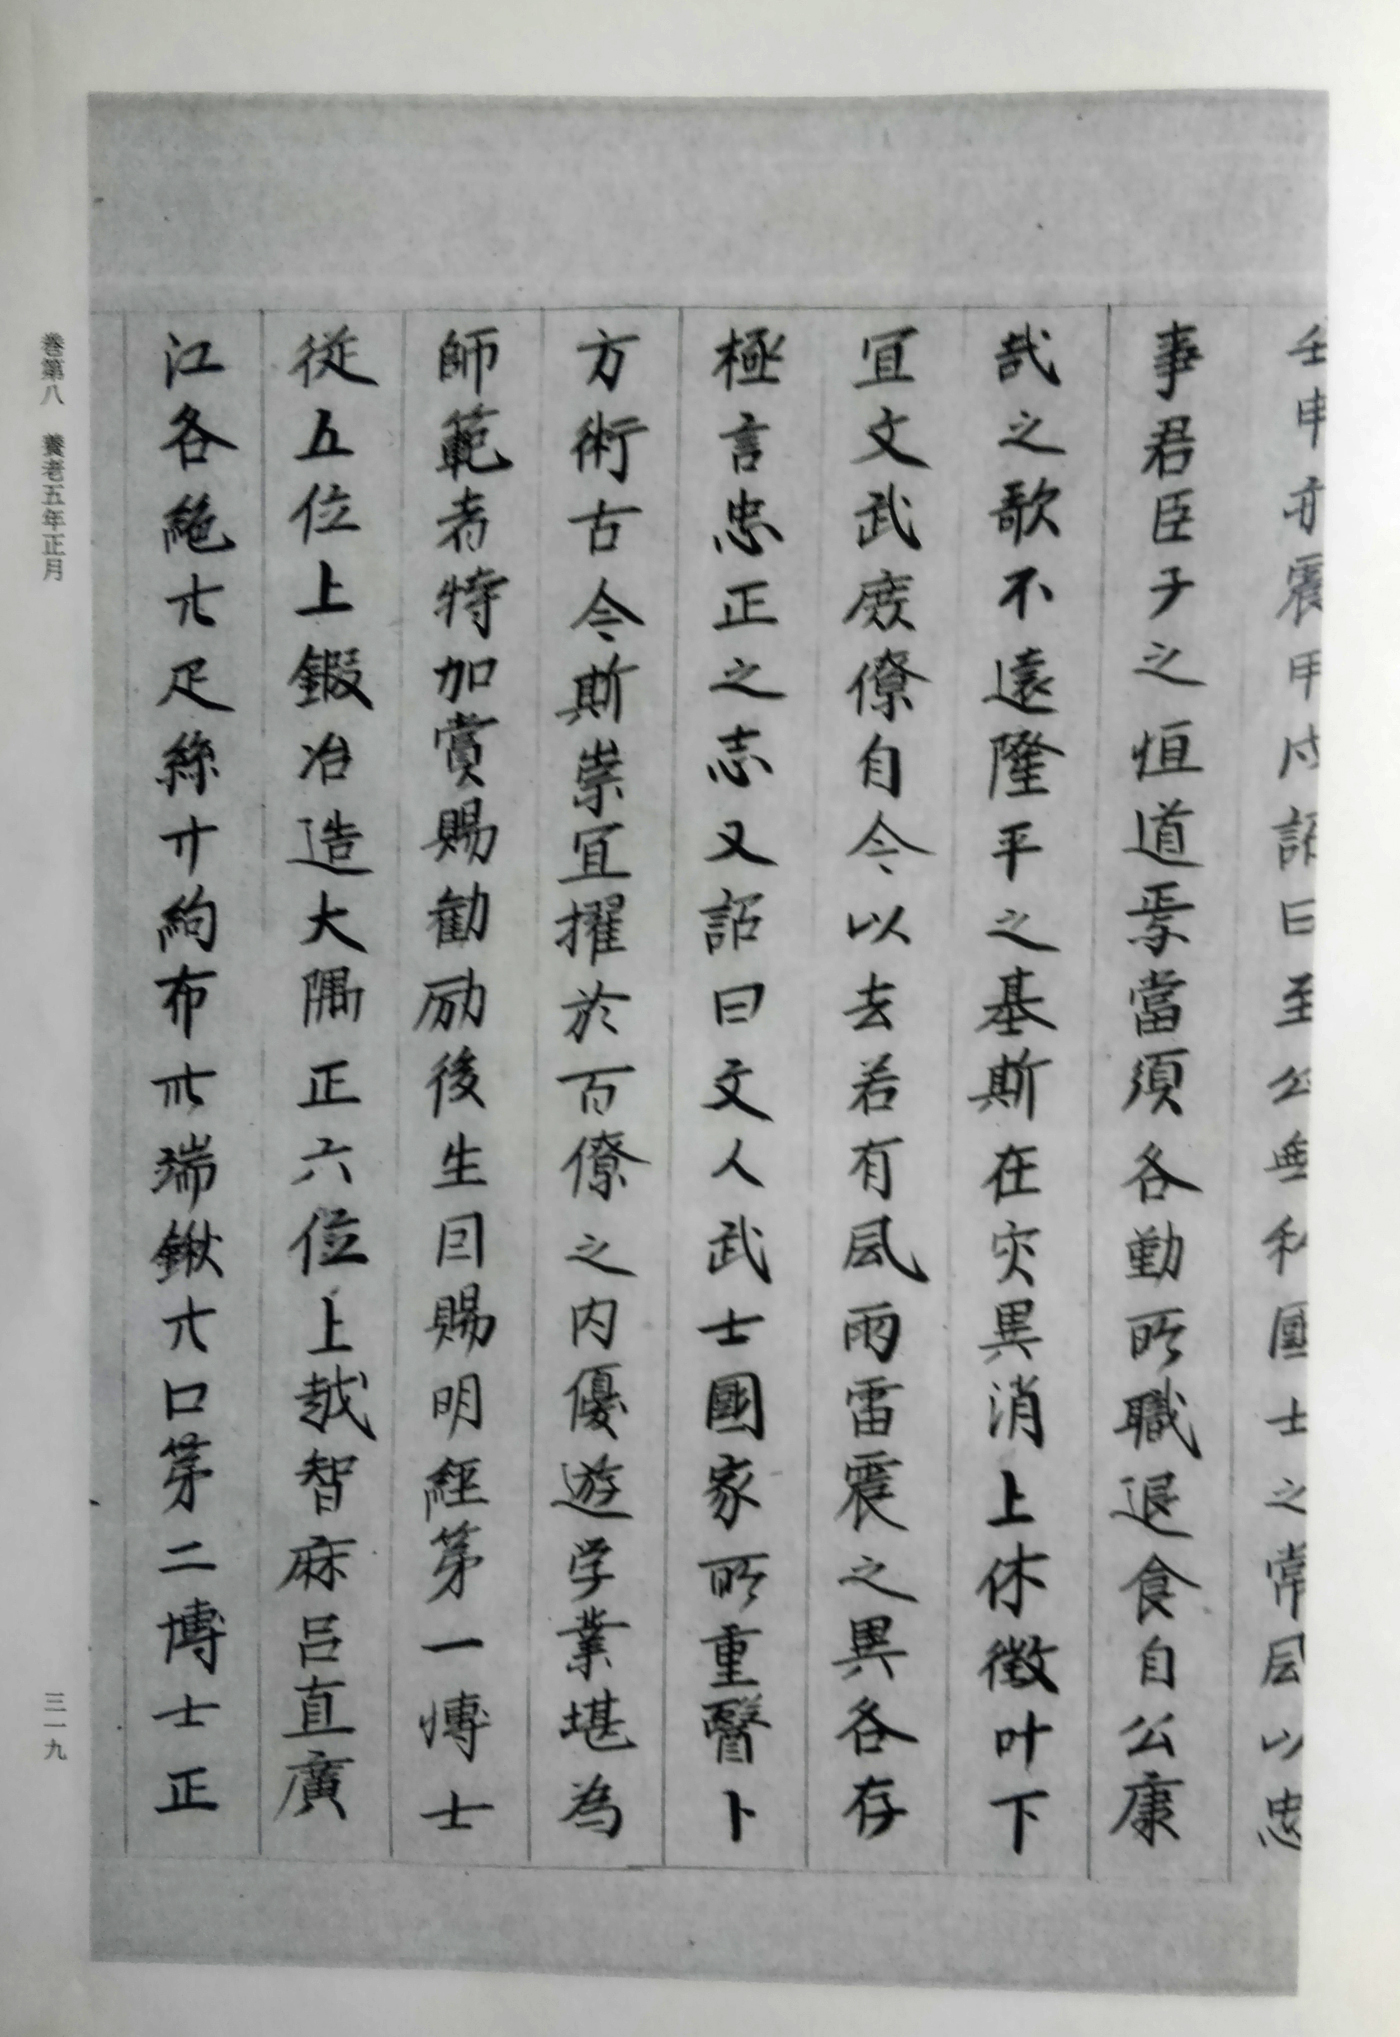 壬申亦震甲戌詔曰至公無私國士之常風以忠
事君臣子之恒道焉當須各勤所職退食自公康
哉之歌不遠隆平之基斯在灾異消上休徵叶下
宜文武庶僚自今以去若有風雨雷震之異各存
極言忠正之志又詔曰文人武士國家所重醫卜
方術古今斯崇宜擢於百僚之内優遊学業堪為
師範者特加賞賜勧励後生因賜明經第一博士
従五位上鍜冶造大隅正六位上越智麻呂直廣
江各絁廿疋絲廿絇布卅端鍬廿口第二博士正
巻第八　養老五年正月
三一九